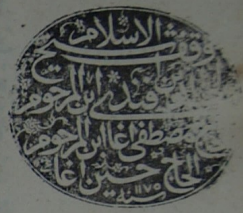 وقف شيخ الاسلام
افندي ابن المرحوم
مصطفى اغا ابن المرحوم
الحاج حسين اغا
سنة ١١٧٥